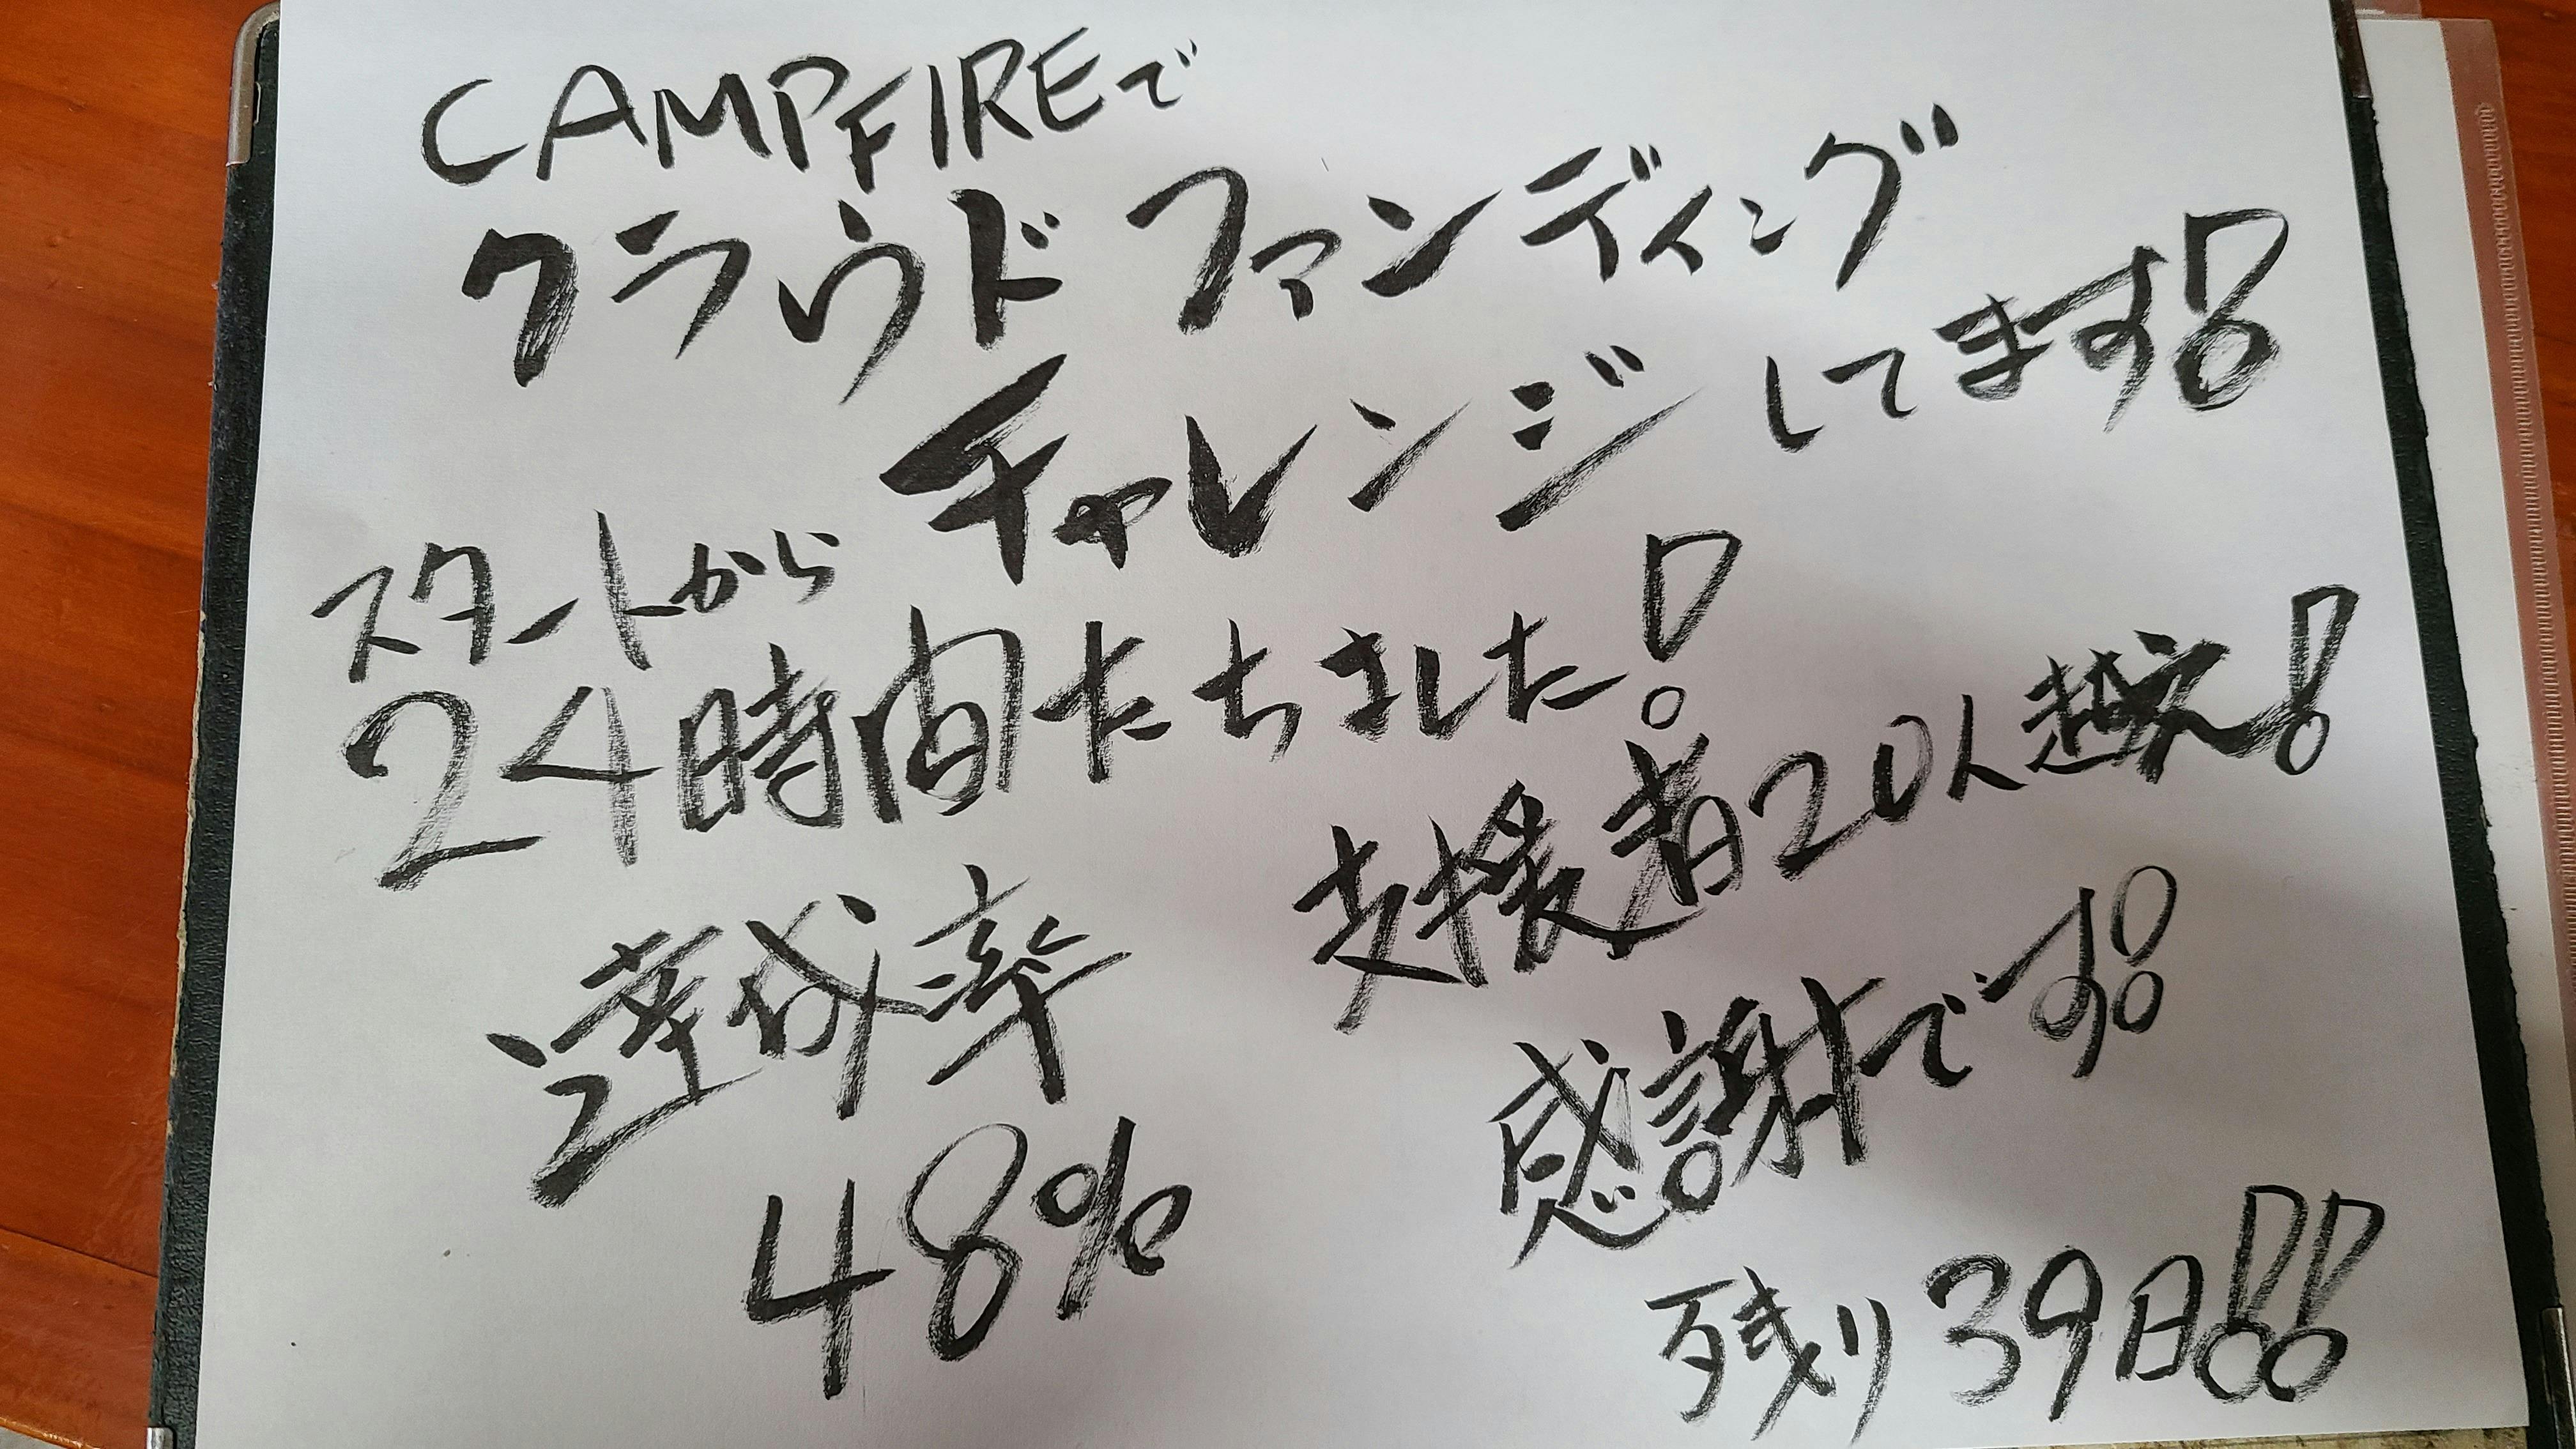 CAMPFIREで
クラウドファンディング
チャレンジしてます!
スタートから
24時間たちました!
達成率
48%
支援者20人越え!
感謝です!
残り39日!!